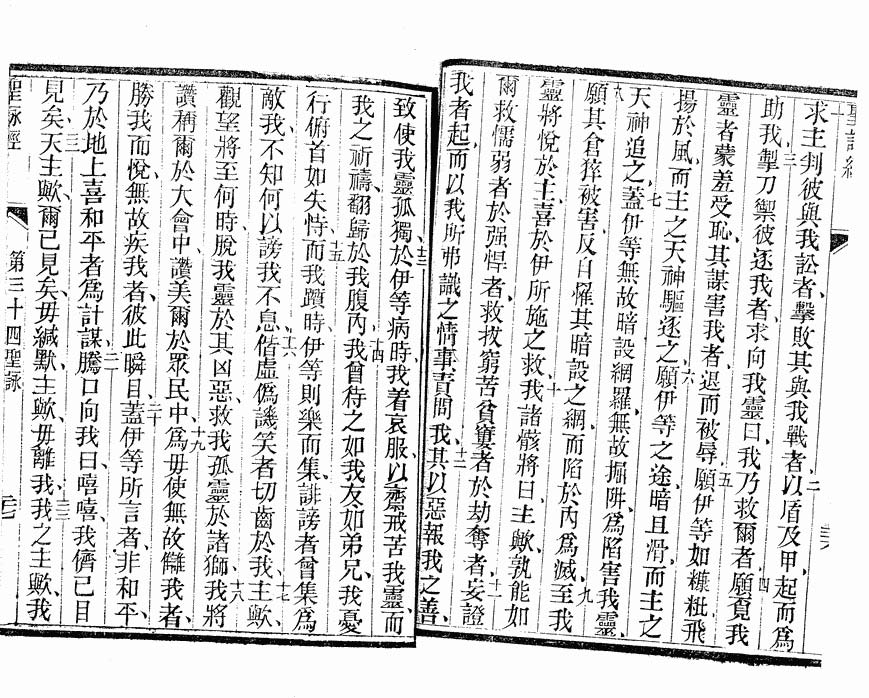 聖詠經
求主判彼與我訟者、擊敗其與我戰者、二以盾及甲、起而爲
助我、三掣刀禦彼逐我者、求向我靈曰、我乃救爾者、四願覓我
靈者蒙羞受恥、其謀害我者、退而被辱、五願伊等如糠粃飛
揚於風、而主之天神驅逐之、六願伊等之途暗且滑、而主之
天神追之、七蓋伊等無故暗設網羅、無故掘阱、爲陷害我靈、
八願其倉猝被害、反自罹其暗設之網、而陷於內爲滅、九至我
靈將悅於主、喜於伊所施之救、十我諸骸將曰、主歟、孰能如
爾、救懦弱者於强悍者、救拔窮苦貧窶者於劫奪者、十一妄證
我者起、而以我所弗識之情事責問我、十二其以惡報我之善、
致使我靈孤獨、十三於伊等病時、我着哀服、以齋戒苦我靈、而
我之祈禱、翻歸於我腹內、十四我曾待之如我友、如弟兄、我憂
行俯首如失恃、十五而我躓時、伊等則樂而集、誹謗者曾集爲
敵我、不知何以謗我不息、十六偕虛僞譏笑者、切齒於我、十七主歟、
觀望將至何時、脫我靈於其凶惡、救我孤靈於諸獅、十八我將
讚稱爾於大會中、讚美爾於眾民中、十九爲毋使無故讎我者、
勝我而悅、無故疾我者、彼此瞬目、二十蓋伊等所言者、非和平、
乃於地上喜和平者爲計謀、二一騰口向我曰、嘻嘻、我儕已目
見矣、二二天主歟、爾已見矣、毋緘默、主歟、毋離我、二三我之主歟、我
聖詠經
第三十四聖詠